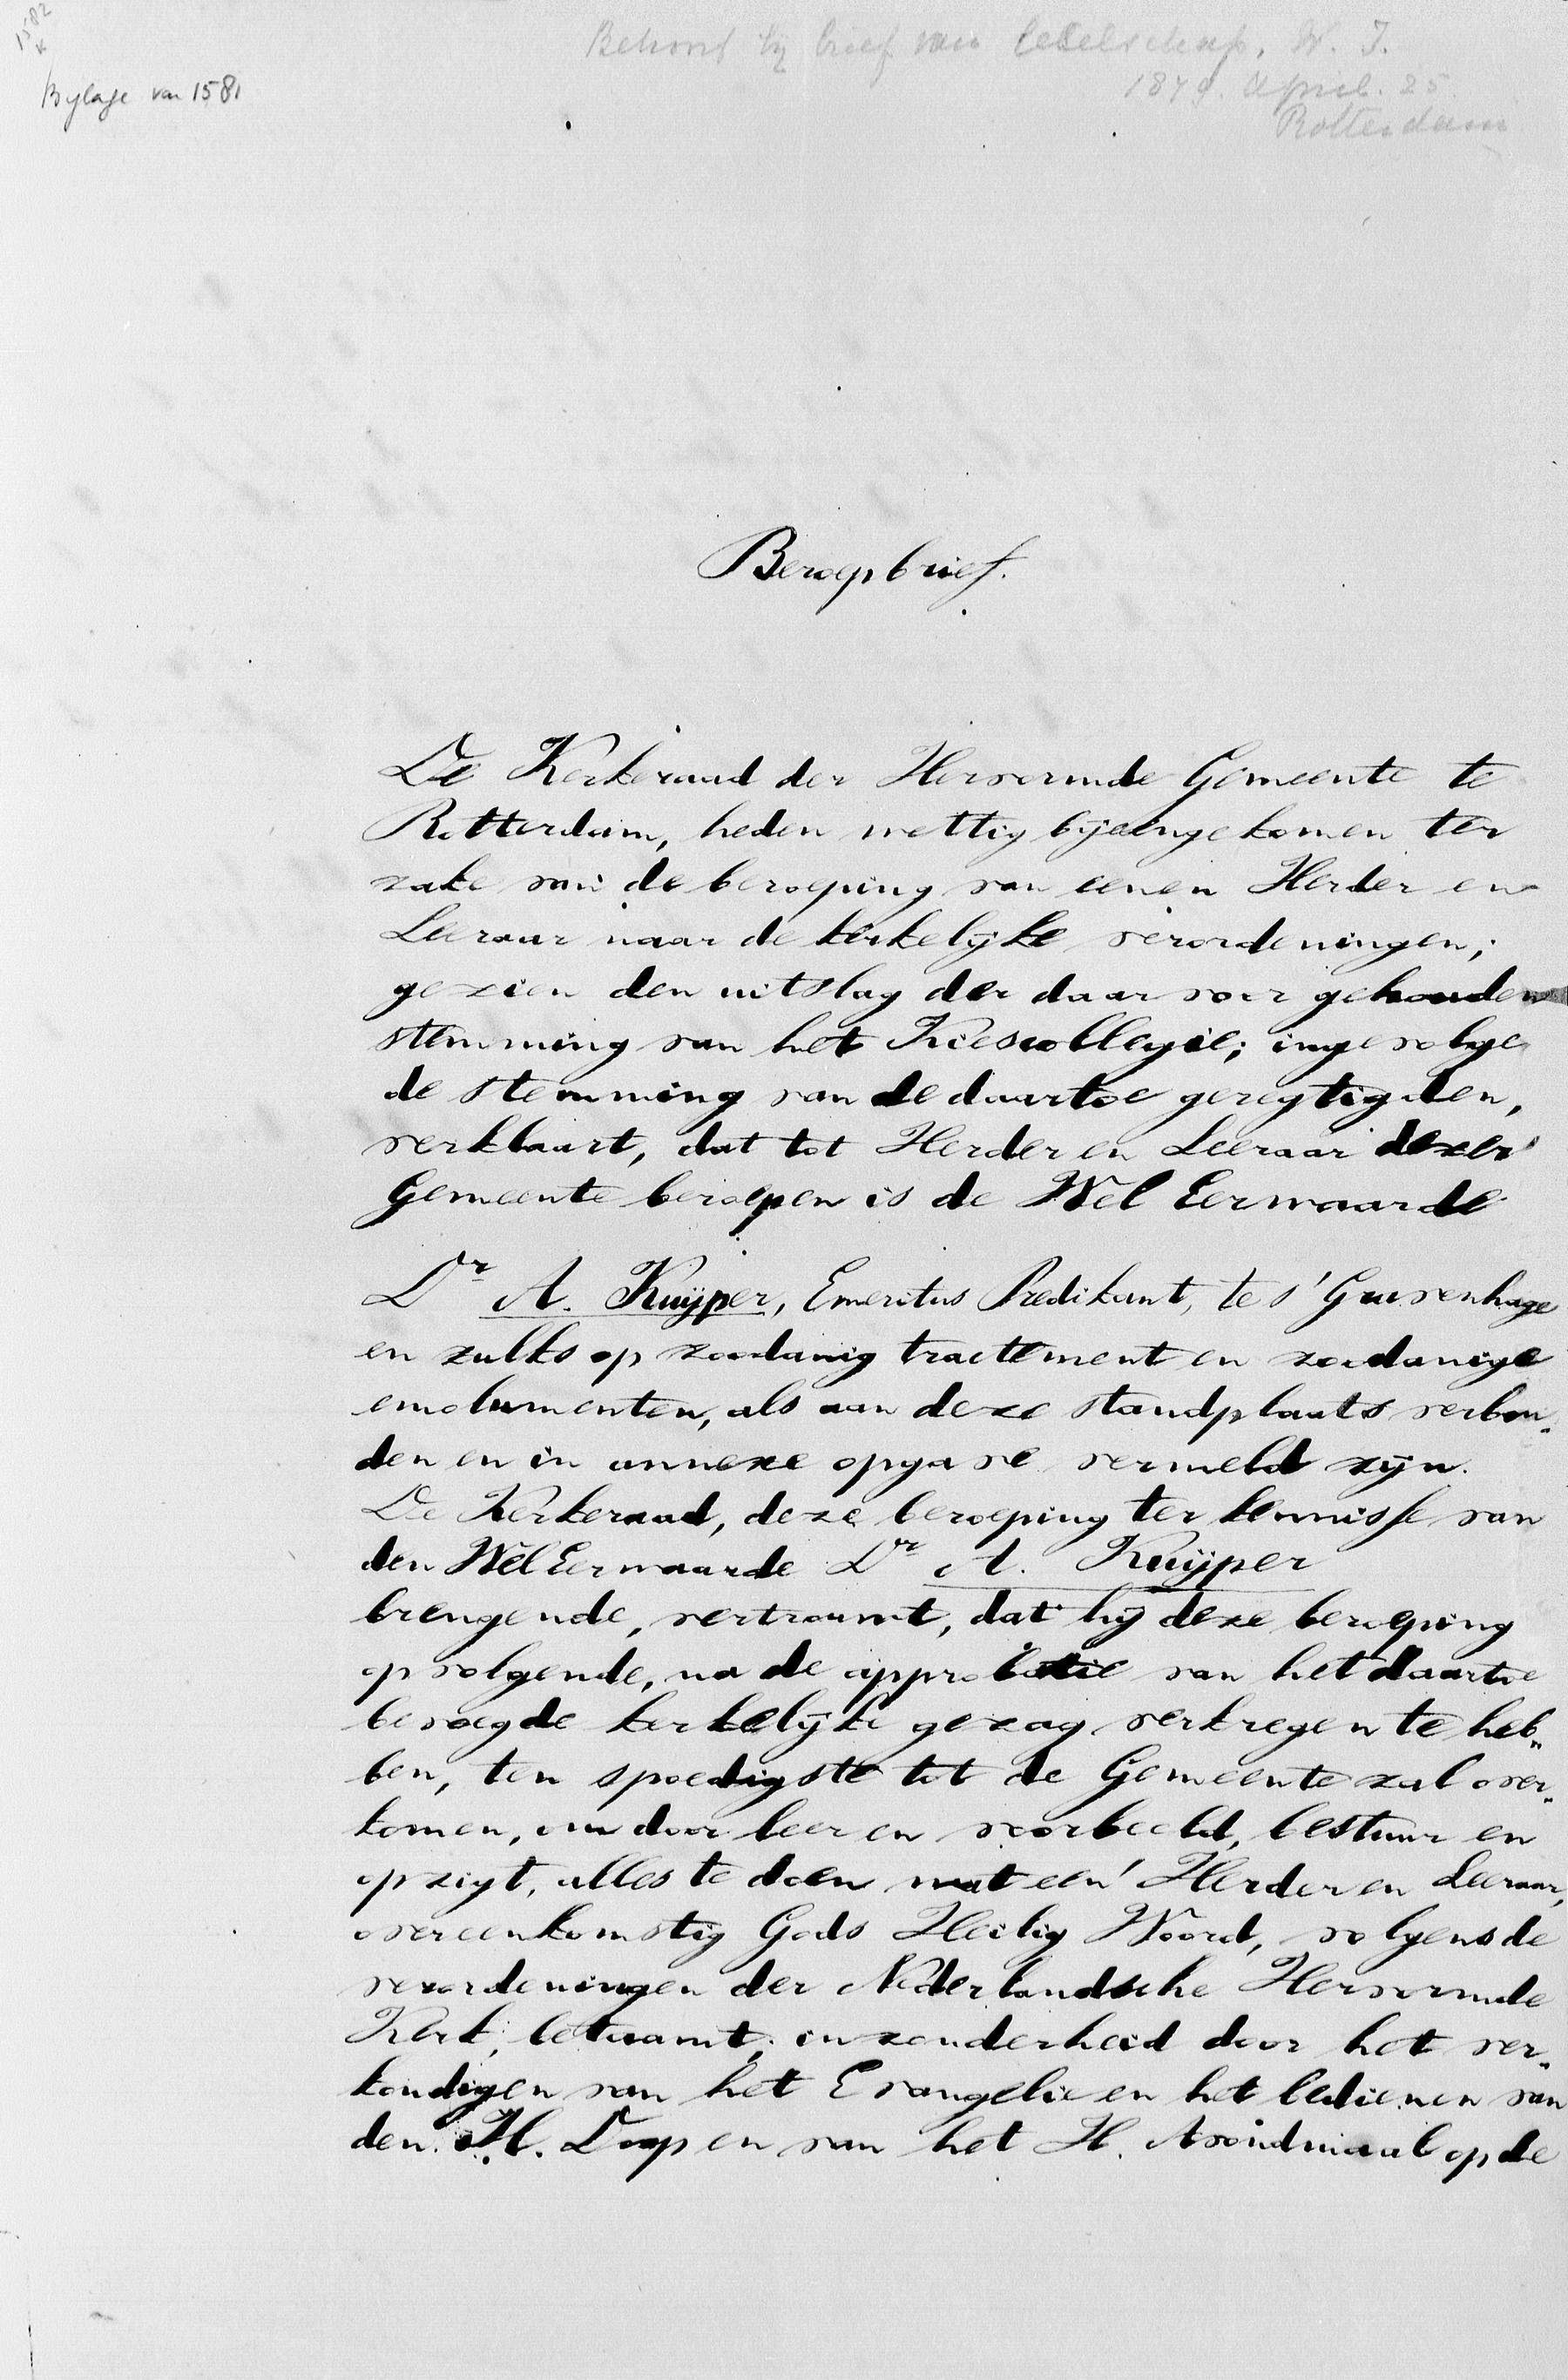 1582
x
Bijlage van 1581
Behoort bij brief van W. J.
1879. April. 25.
Rotterdam
Beroepbrief.
De Kerkeraad der Hervormde Gemeente te
Rotterdam, heden wettig bijeengekomen ter
zake van de beroeping van eenen Herder en
Leeraar naar de kerkelijke verordeningen;
gezien den uitslag der daar voor gehouden
stemming van het Kiescollegie; ingevolge
de stemming van de daartoe geregtigden,
verklaart, dat tot Herder en Leeraar dezer
Gemeente beroepen is de Wel Eerwaarde
Dr A. Kuijper, Emeritus Predikant, te s' Gravenhage
en zulks op zoodanig tractement en zoodanige
emolumenten, als aan deze standplaats verbon„
den en in annexe opgave vermeld zijn.
De Kerkeraad, deze beroeping ter kennisse van
den Wel Eerwaarde Dr A. Kuijper
brengende, vertrouwt, dat hij deze beroeping
opvolgende, na de approbatie van het daartoe
bevoegde kerkelijke gezag verkregen te heb„
ben, ten spoedigste tot de Gemeente zal over„
komen, om door leer en voorbeeld, bestuur en
opzigt, alles te doen wat een' Herder en Leeraar,
overeenkomstig Gods Heilig Woord, volgens de
verordeningen der Nederlandsche Hervormde
Kerk, betaamt, inzonderheid door het ver„
kondigen van het Evangelie en het bedienen van
den H. Doop en van het H. Avondmaal op de